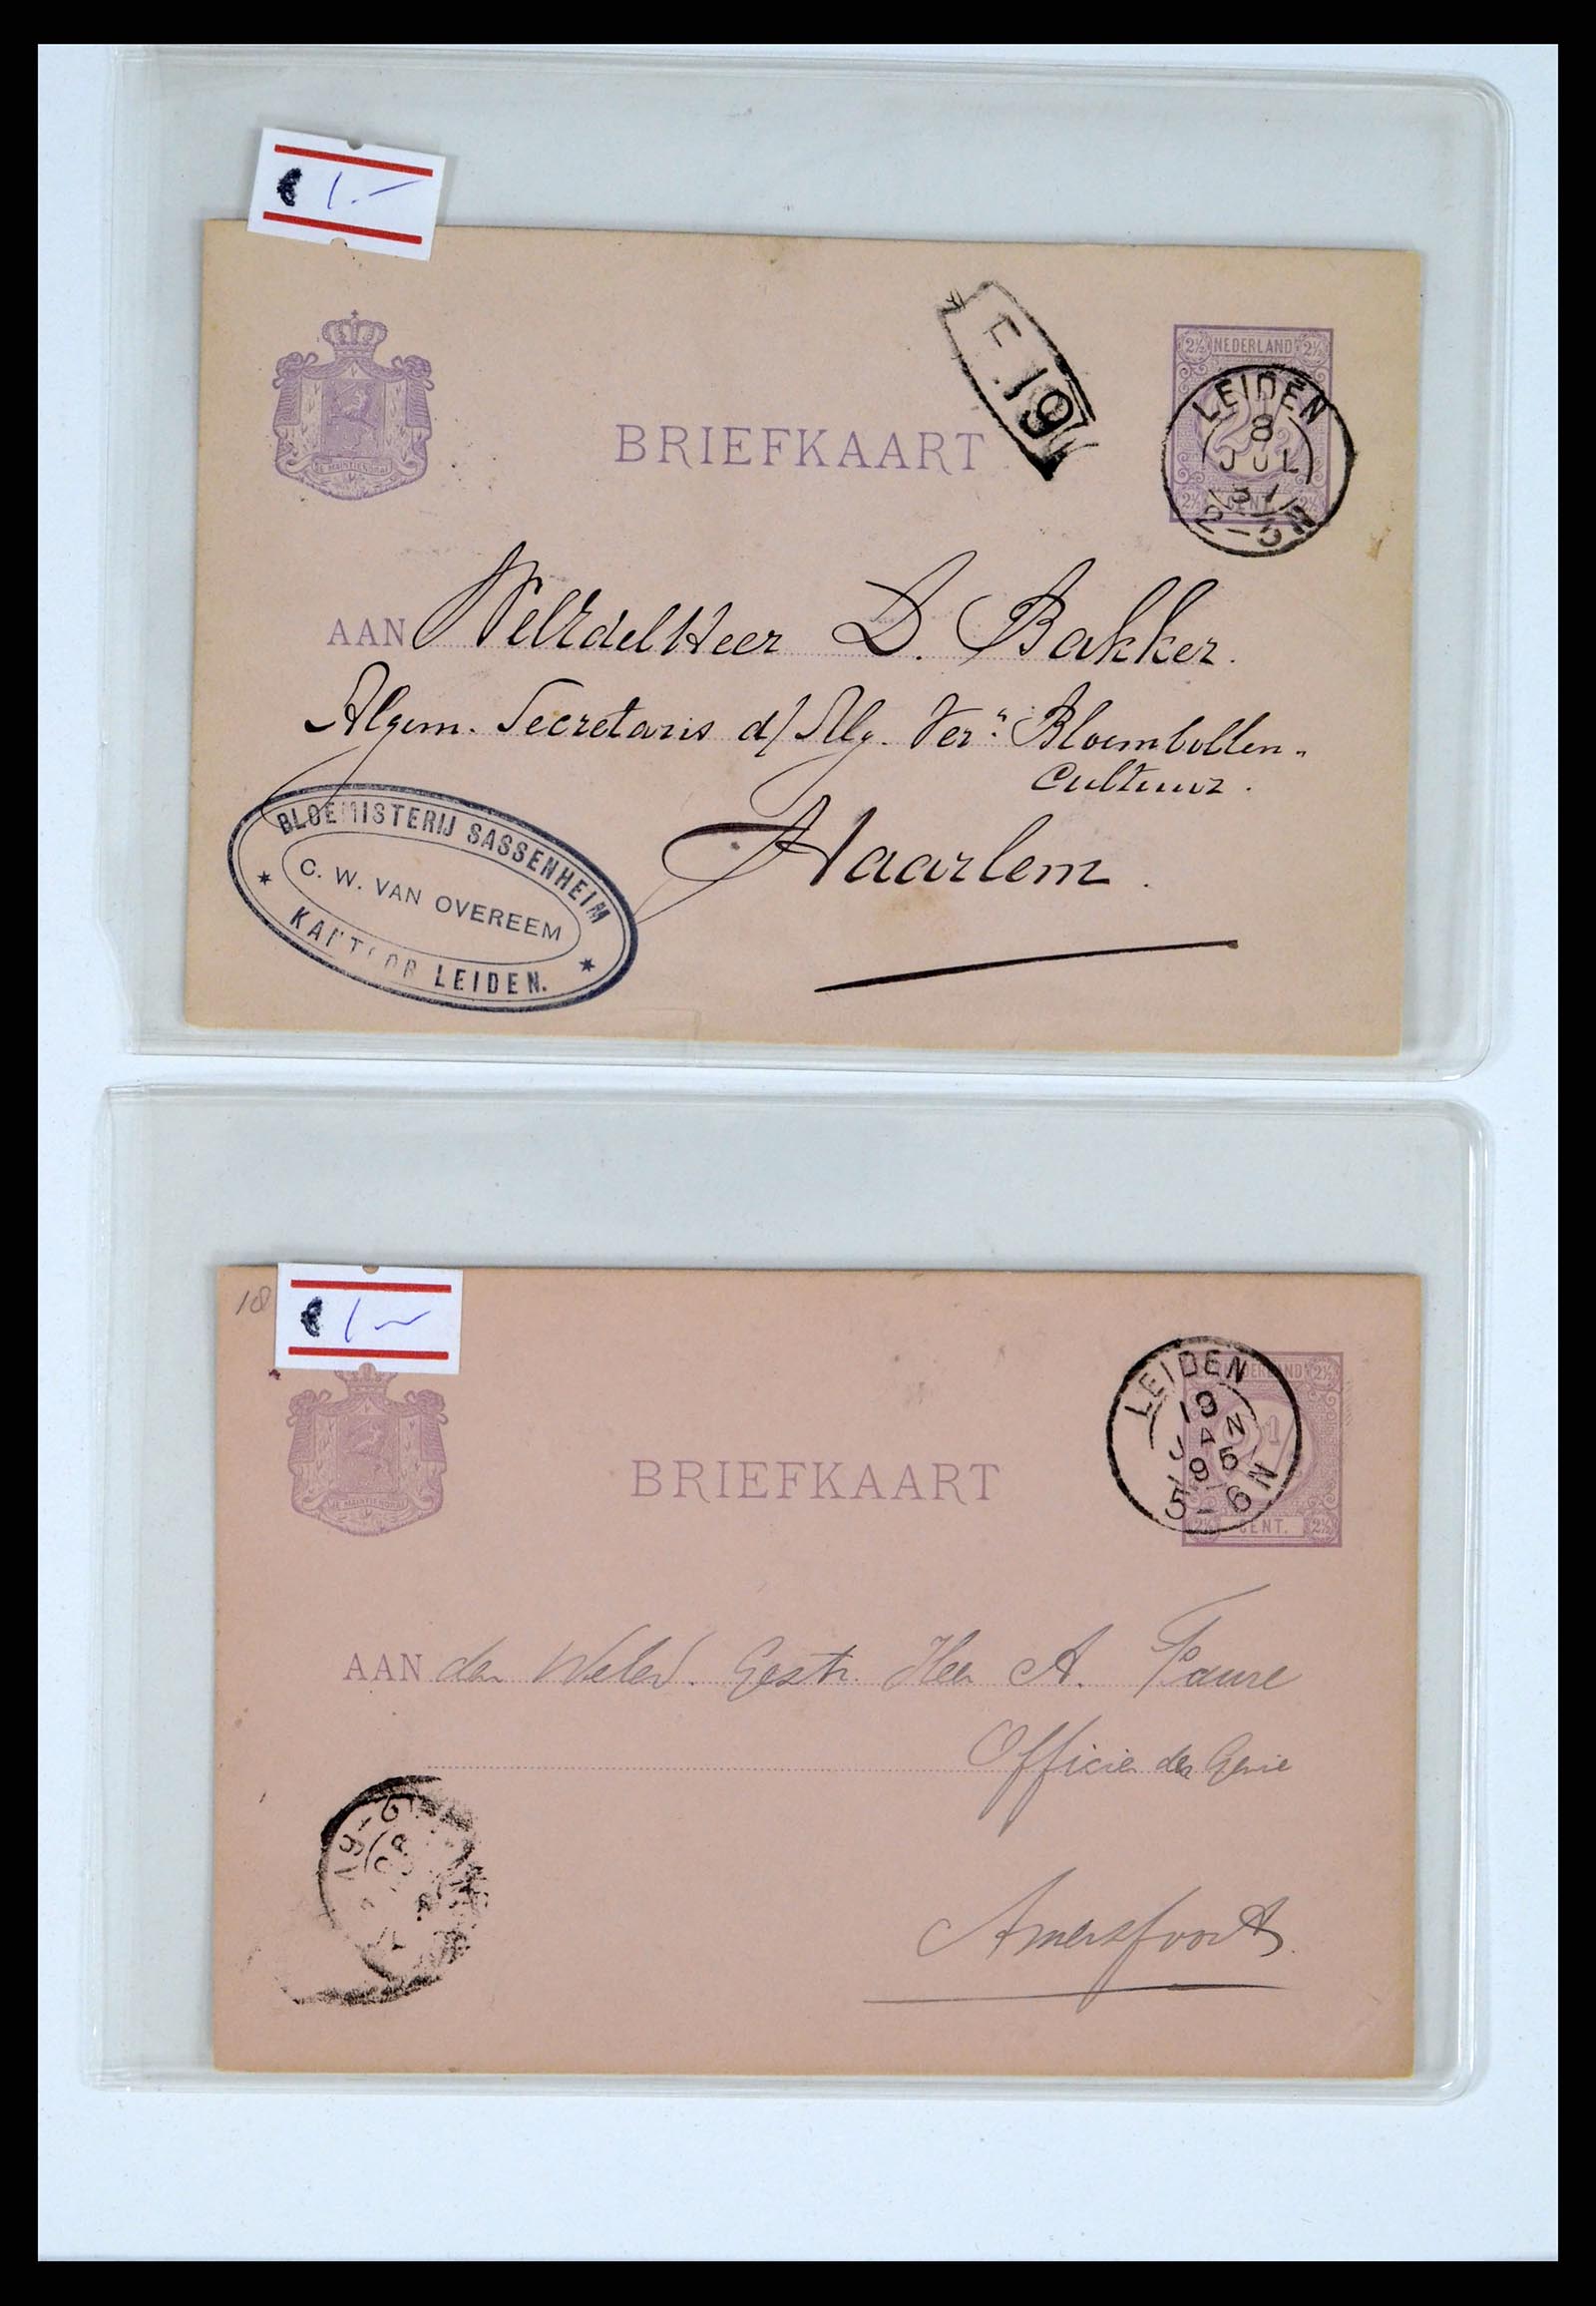 € 1.-
BRIEFKAART
E 19
2½ NEDERLAND 2½
2½ CENT 2½
LEIDEN
8
JUL
JE MAINTIENDRAI
AAN WelEdelHeer D. Bakker.
Algem. Secretaris d/ Alg. Ver: Bloembollen-
Cultuur.
Haarlem.
BLOEMISTERIJ SASSENHEIM
C. W. VAN OVEREEM
KANTOOR LEIDEN.
18
€ 1-
JE MAINTIENDRAI
BRIEFKAART
NEDERLAND 2½
2½ CENT. 2½
LEIDEN
19
JAN
95
5-6N
AAN den Weled. Gestr. Heer A. Faure
Officier der Genie
Amersfoort